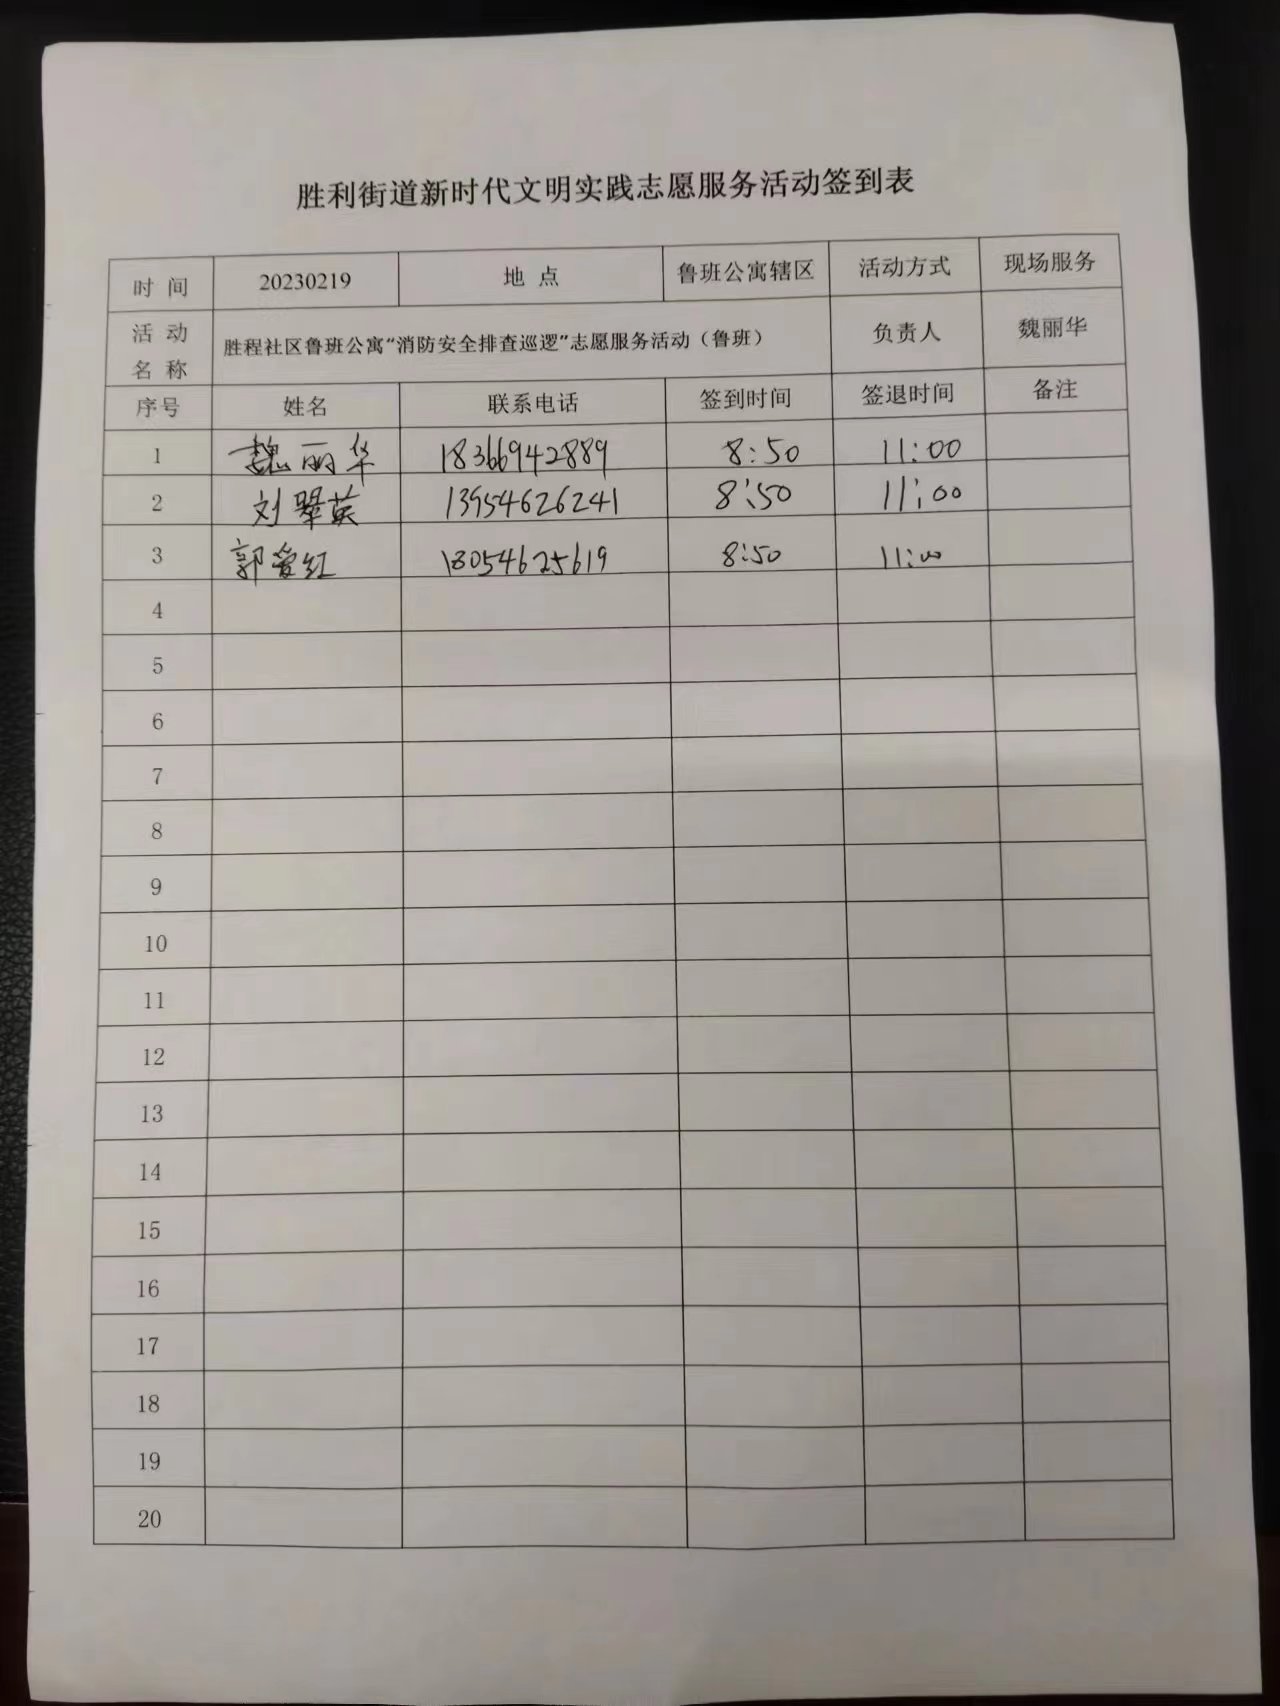 胜利街道新时代文明实践志愿服务活动签到表
时 间 20230219 地 点 鲁班公寓辖区 活动方式 现场服务
活 动
名 称 胜程社区鲁班公寓“消防安全排查巡逻”志愿服务活动（鲁班） 负责人 魏丽华
序号 姓名 联系电话 签到时间 签退时间 备注
1 魏丽华 18366942889 8:50 11:00
2 刘翠英 13954626241 8:50 11:00
3 郭爱红 18054625619 8:50 11:00
4
5
6
7
8
9
10
11
12
13
14
15
16
17
18
19
20